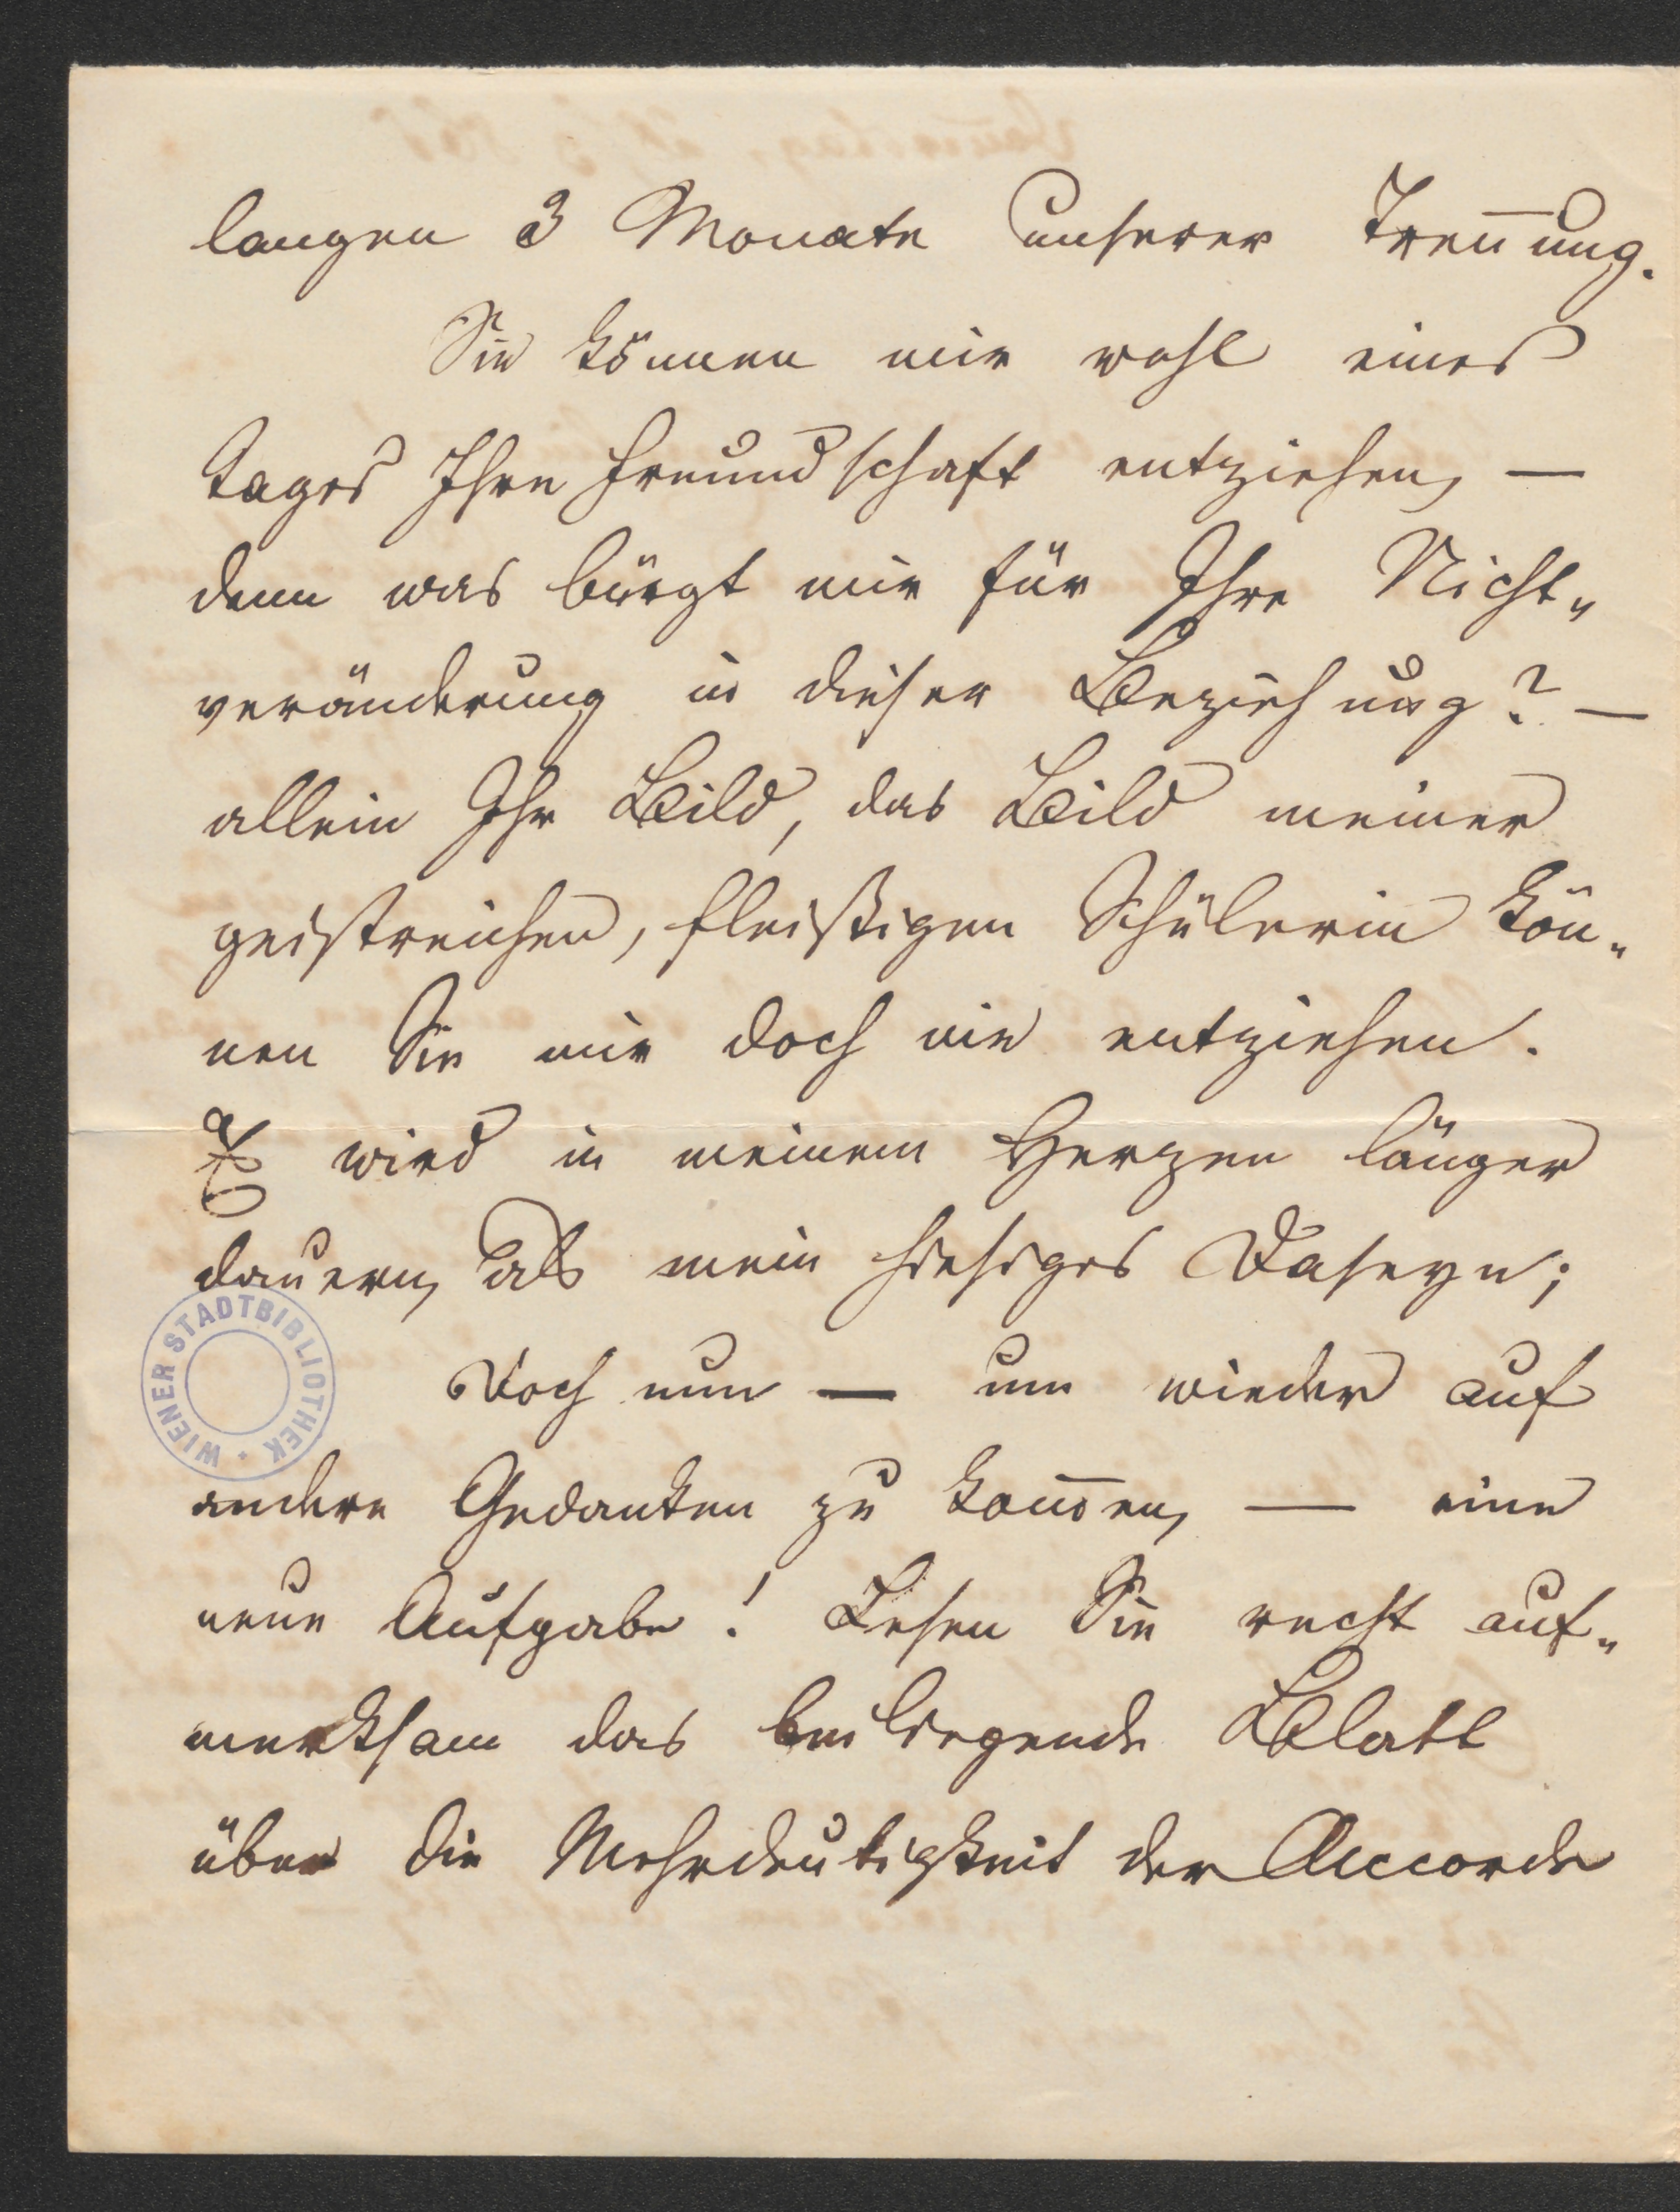 langen 3 Monate unserer Treñung.
Sie können mir wohl eines
Tages Ihre Freundschaft entziehen, —
denn was bürgt mir für Ihre Nicht„
veränderung in dieser Beziehung? —
allein Ihr Bild, das Bild meiner
geistreichen, fleißigen Schülerin kön„
nen Sie mir doch nie entziehen.
Es wird in meinem Herzen länger
dauern, als mein hiesiges Daseyn;
Doch nun — um wieder auf
andere Gedanken zu kom̄en, — eine
neue Aufgabe! Lesen Sie recht auf„
merksam das beiliegende Blatt
über die Mehrdeutigkeit der Accorde
WIENER STADTBIBLIOTHEK